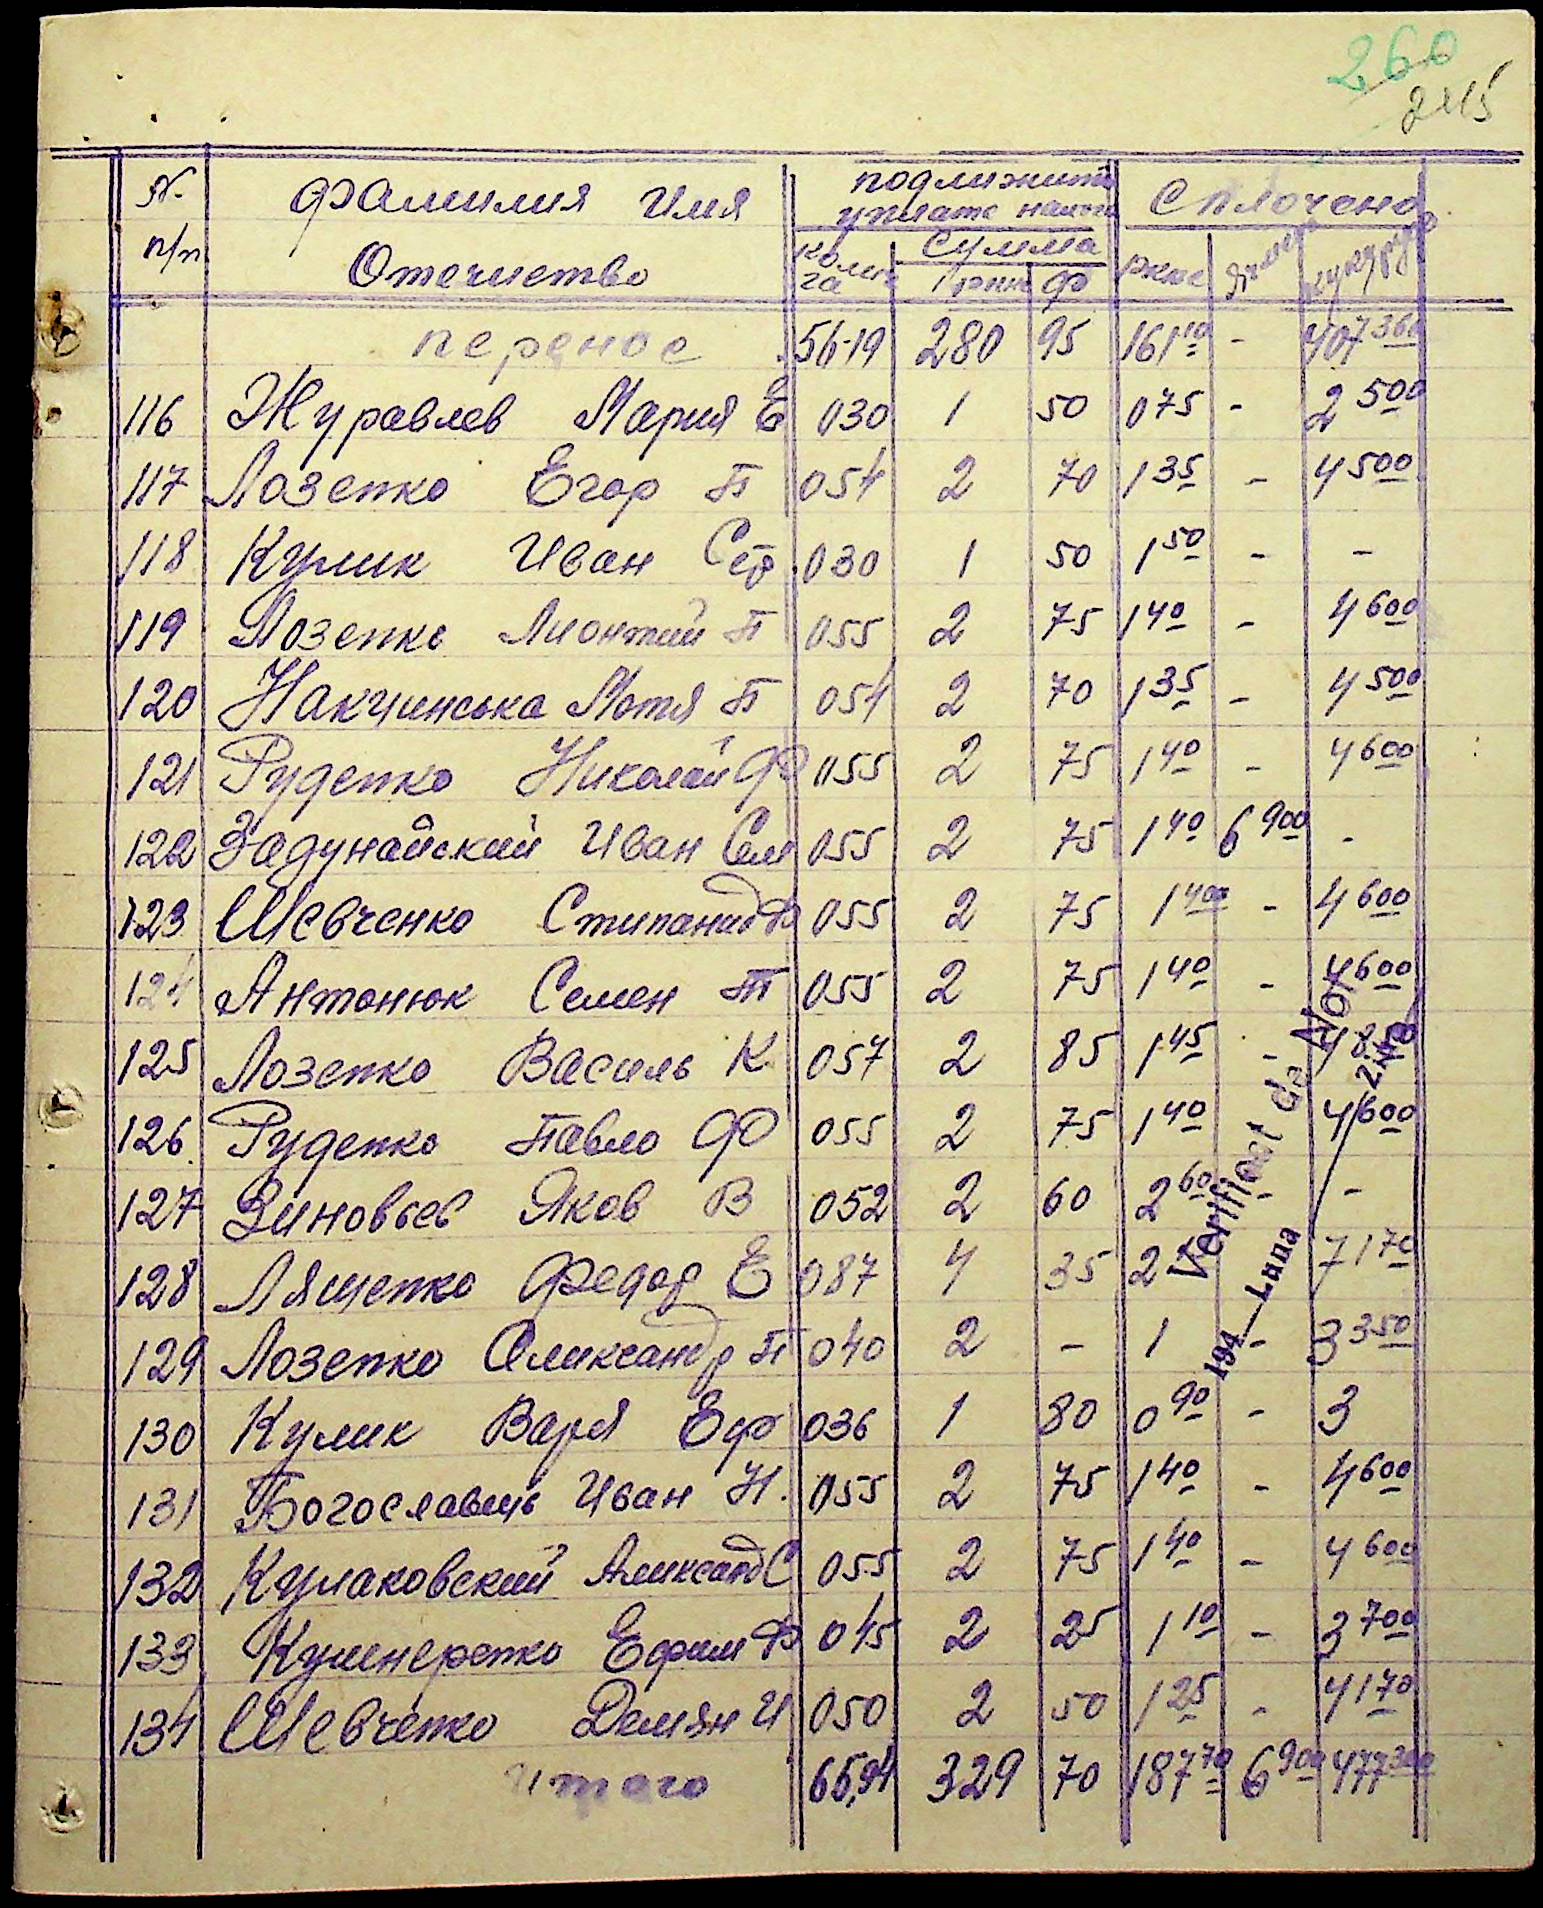 260
245
№ п/п Фамилия Имя Отечиство подлижить уплате налога Сплочено
колич га Сумма ркм ф ркм Ячмень кукуруз
перенос 56-19 280 95 161 10 - 407 360
116 Журавлев Мария Е 030 1 50 075 - 2 500
117 Лозенко Егор П 054 2 70 1 35 - 4 500
118 Кулик Иван Сер 030 1 50 1 50 - -
119 Лозенко Лионтий П 055 2 75 1 40 - 4 600
120 Накчинська Мотя П 054 2 70 1 35 - 4 500
121 Руденко Николай Ф 055 2 75 1 40 - 4 600
122 Задунайский Иван Сем 055 2 75 1 40 6 900 -
123 Шевченко Стипанид Ф 055 2 75 1 400 - 4 600
124 Антонюк Семен Т 055 2 75 1 40 - 4 600
125 Лозенко Василь К 057 2 85 1 45 -
126 Руденко Павло Ф 055 2 75 1 40 4 600
127 Зиновьев Яков В 052 2 60 2 60 - -
128 Лященко Федор Е 087 4 35 2 7 170
129 Лозенко Олександр П 040 2 - 1 - 3 350
130 Кулик Варя Еф 036 1 80 0 90 - 3
131 Богославець Иван Н. 055 2 75 1 40 - 4 600
132 Кулаковский Аликсанд С 055 2 75 1 40 - 4 600
133 Кушнеренко Ефим Ф 045 2 25 1 10 - 3 700
134 Шевченко Демян И 050 2 50 1 25 - 4 170
итого 65,94 329 70 187 70 6 900 477 300
Verificat de Noi
194 Luna